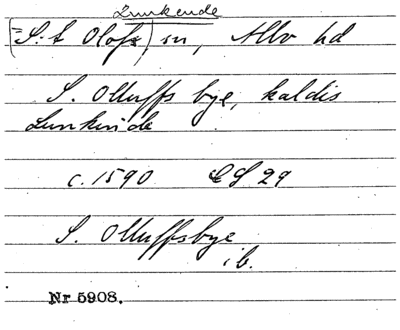 Lunkende
(=S:t Olofs) sn, Albo hd
S. Olluffs bye, kaldis
Lunkinde
c. 1590 LS 29
S. Olluffsbye
ib.
Nr 5908.